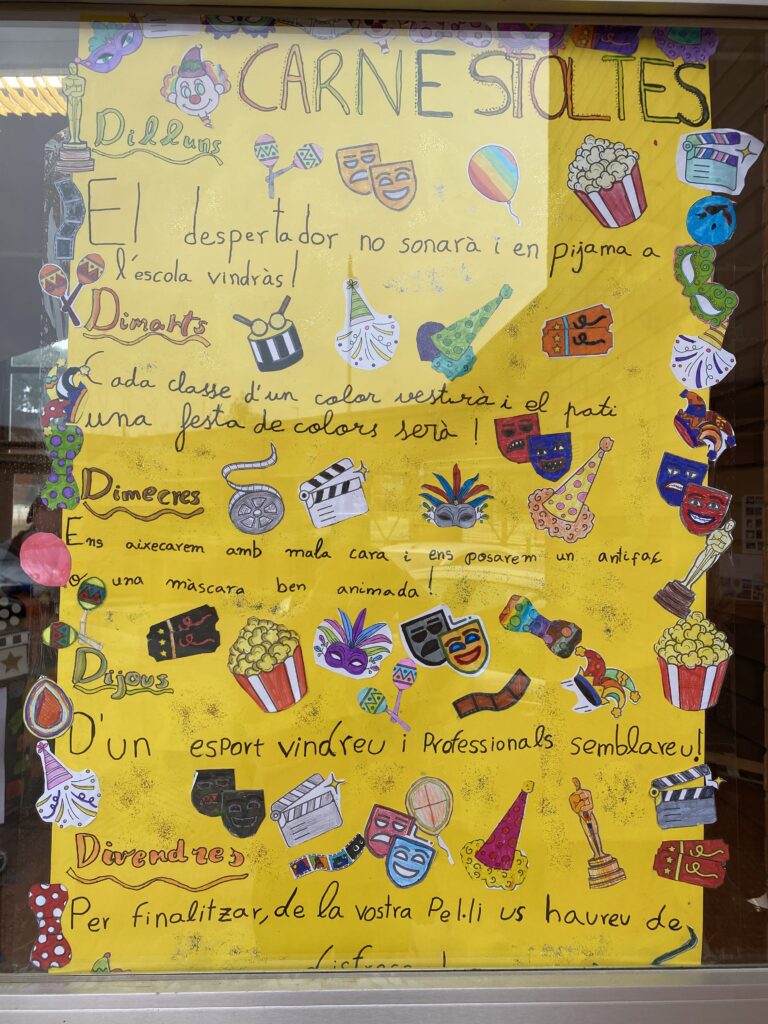 CARNESTOLTES
Dilluns
El despertador no sonarà i en pijama a
l'escola vindràs!
Dimarts
Cada classe d'un color vestirà i el pati
una festa de colors serà!
Dimecres
Ens aixecarem amb mala cara i ens posarem un antifaç
o una màscara ben animada!
Dijous
D'un esport vindreu i Professionals semblareu!
Divendres
Per finalitzar, de la vostra Pel·li us haureu de